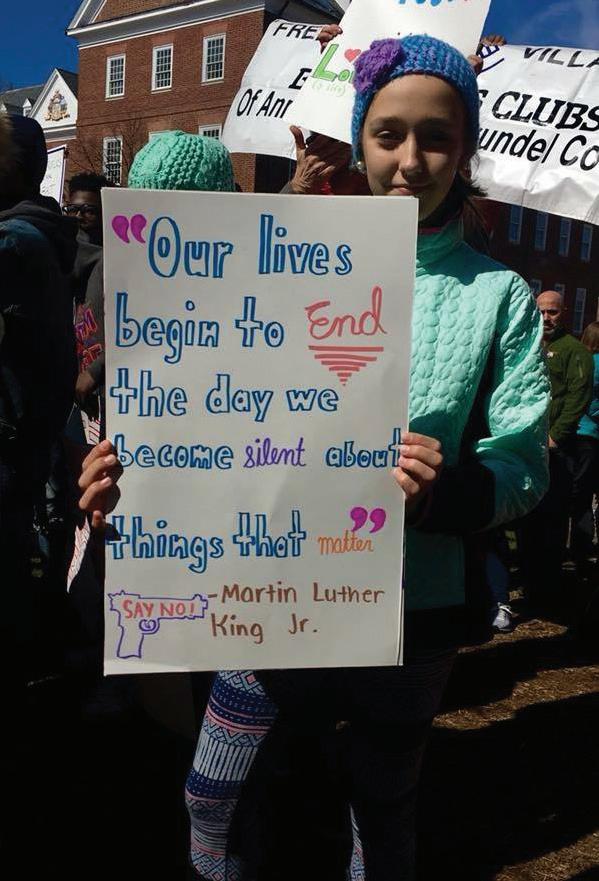 FRE
VILLA
Of Ann
CLUBS
undel Co
"Our lives
begin to End
the day we
become silent about
things that matter"
SAY NO!
-Martin Luther
King Jr.